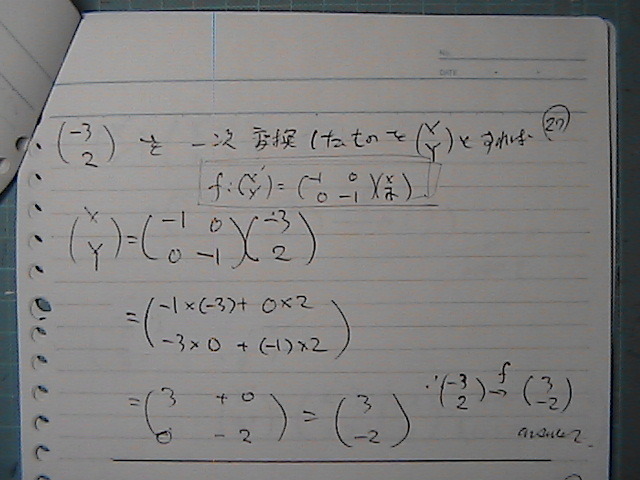 No.
DATE
(-3 2) を 一次 変換 したものを (X Y) とすれば (27)
f: (x' y') = (-1 0 0 -1)(x y)
(X Y) = (-1 0 0 -1)(-3 2)
= (-1×(-3)+ 0×2 -3×0 +(-1)×2)
= (3 +0 0 -2) = (3 -2) ∴ (-3 2) →f (3 -2)